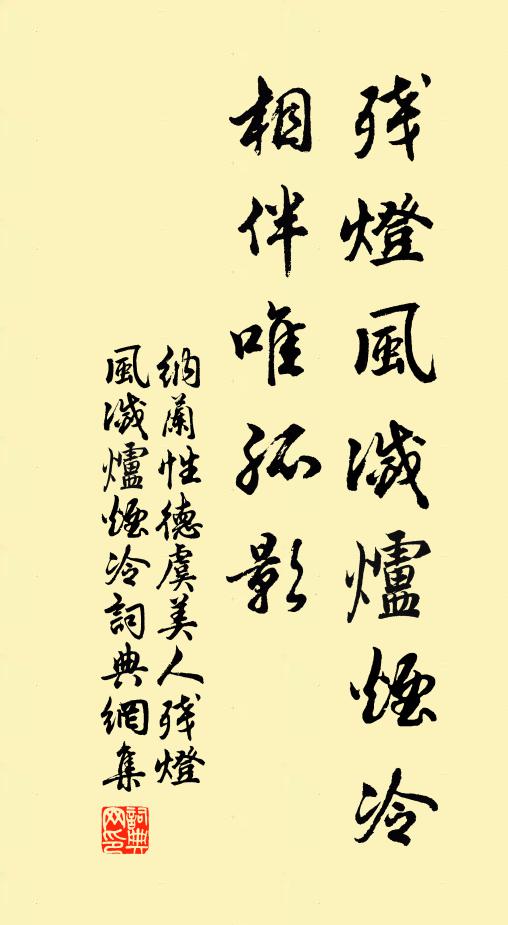 残燈風滅爐煙冷
相伴唯孤影
納蘭性德虞美人残燈
風滅爐煙冷詞典網集
詞典
网印